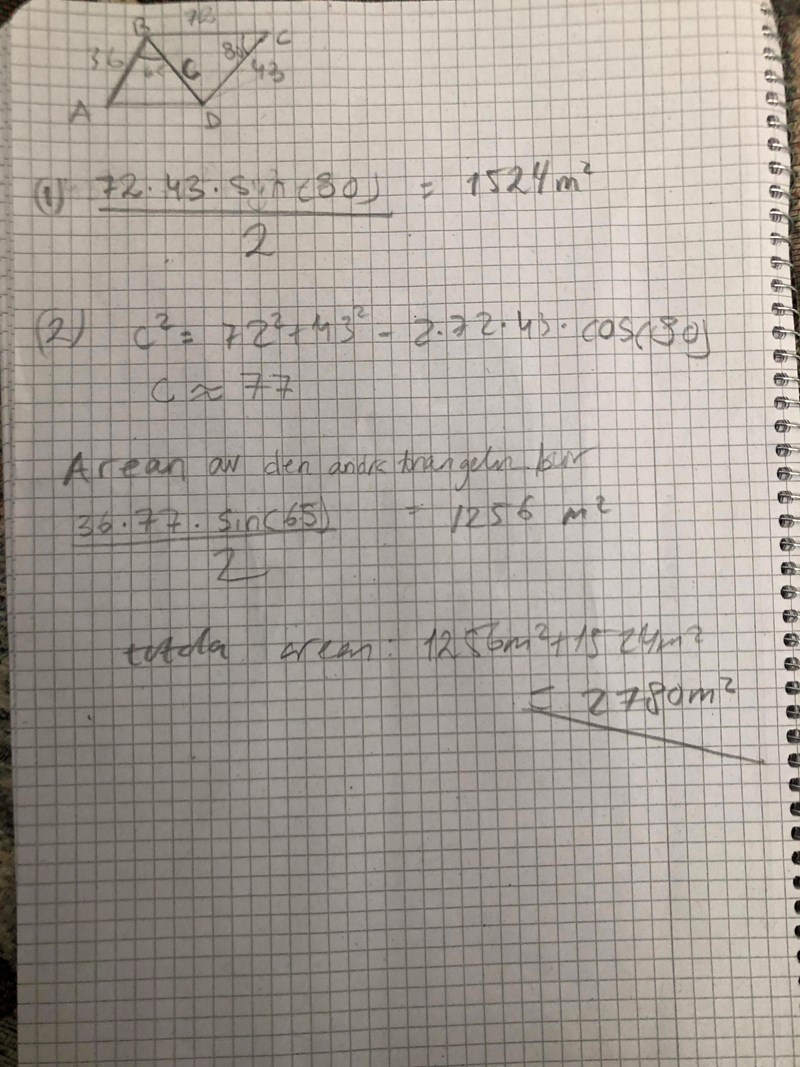 B 72 C
36 65 C 80 43
A D
(1) 72·43·sin(80) = 1524 m²
2
(2) c² = 72²+43² - 2·72·43·cos(80)
c ≈ 77
Arean av den andra triangeln blir
36·77·sin(65) = 1256 m²
2
totala arean: 1256m²+1524m²
= 2780m²